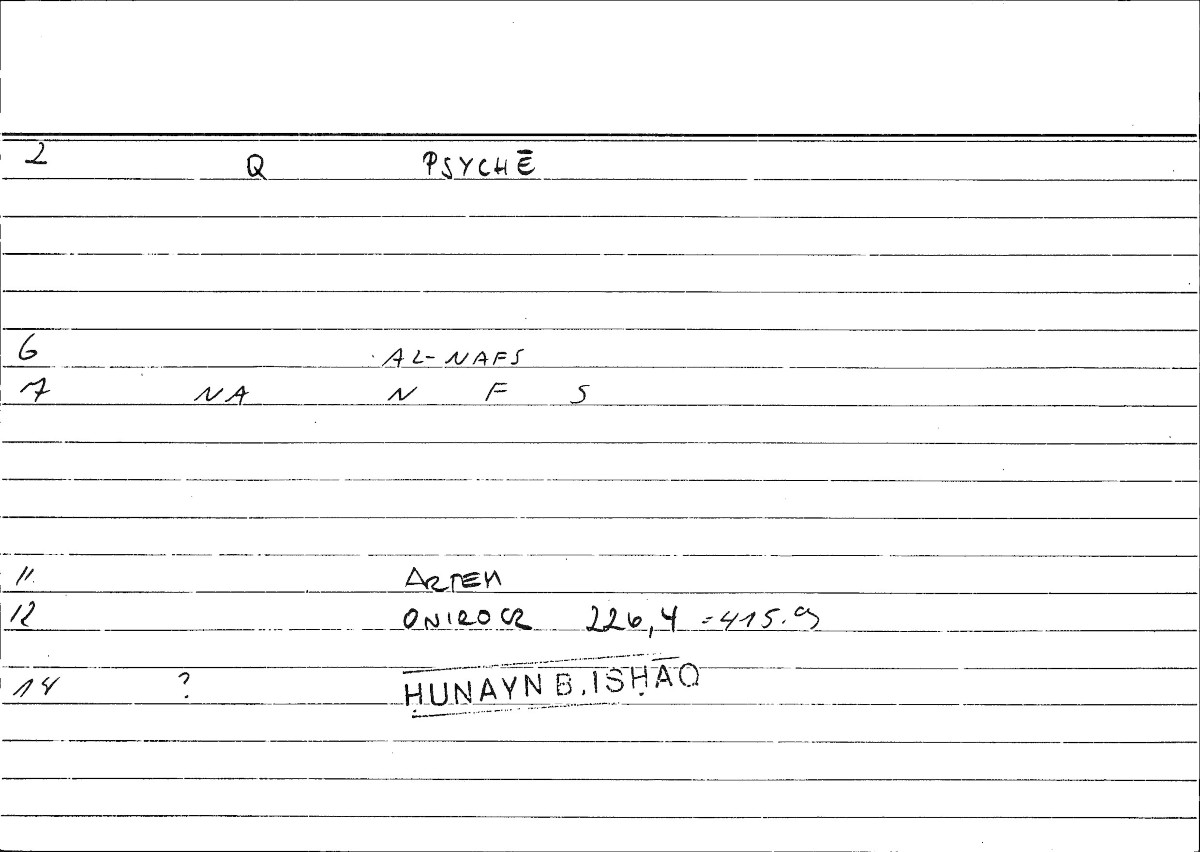 2 Q PSYCHĒ
6 AL-NAFS
7 NA N F S
11 ARTEM
12 ONIROCR 226,4 = 415.9
14 ? ḤUNAYN B. ISḤĀQ